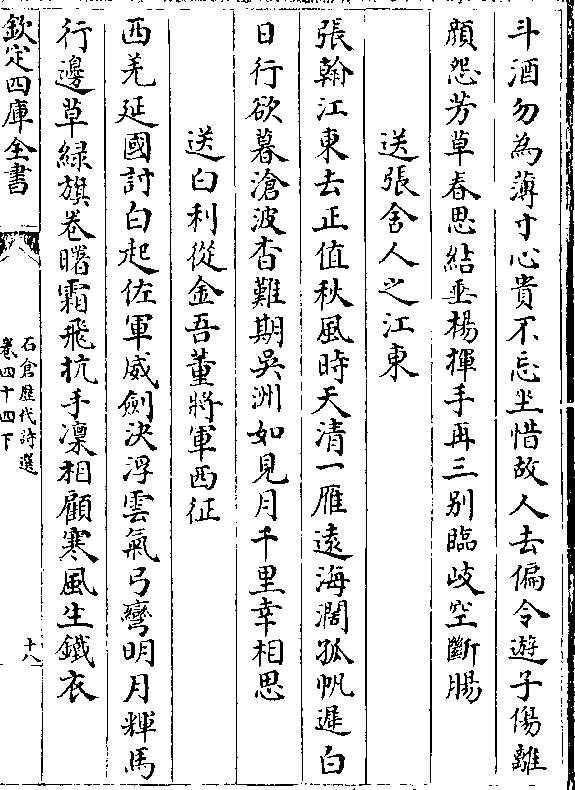 斗酒勿為薄寸心貴不忘坐惜故人去偏令遊子傷離
顔怨芳草春思結垂楊揮手再三别臨岐空斷腸
送張舍人之江東
張翰江東去正值秋風時天清一雁遠海濶孤帆遲白
日行欲暮滄波杳難期吳洲如見月千里幸相思
送白利從金吾董將軍西征
西羌延國討白起佐軍威劍決浮雲氣弓彎明月輝馬
行邊草綠旗卷曙霜飛抗手凜相顧寒風生鐵衣
欽定四庫全書
石倉歷代詩選
卷四十四下
十八